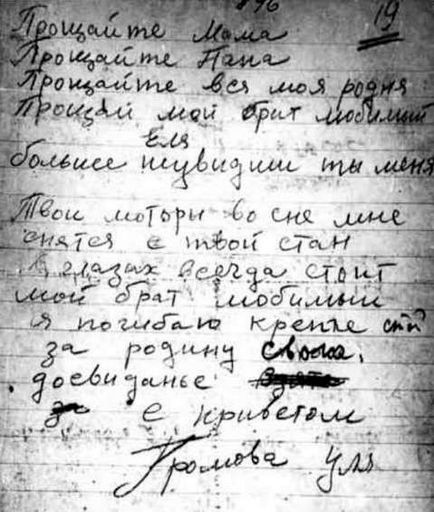 19
Прощайте Мама
Прощайте Папа
Прощайте вся моя родня
Прощай мой брат любимый
Еля
больше неувидиш ты меня
Твои моторы во сне мне
снятся с твой стан
в глазах всегда стоит
мой брат любимый
я погибаю крепче стой
за родину свою.
досвиданье
с приветом
Громова Уля